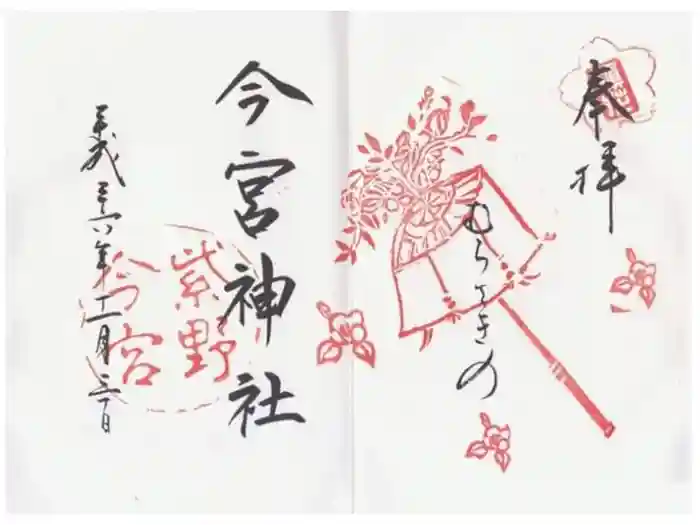 奉拝
むらさきの
今宮神社
紫野
今宮
平成 年十一月 日